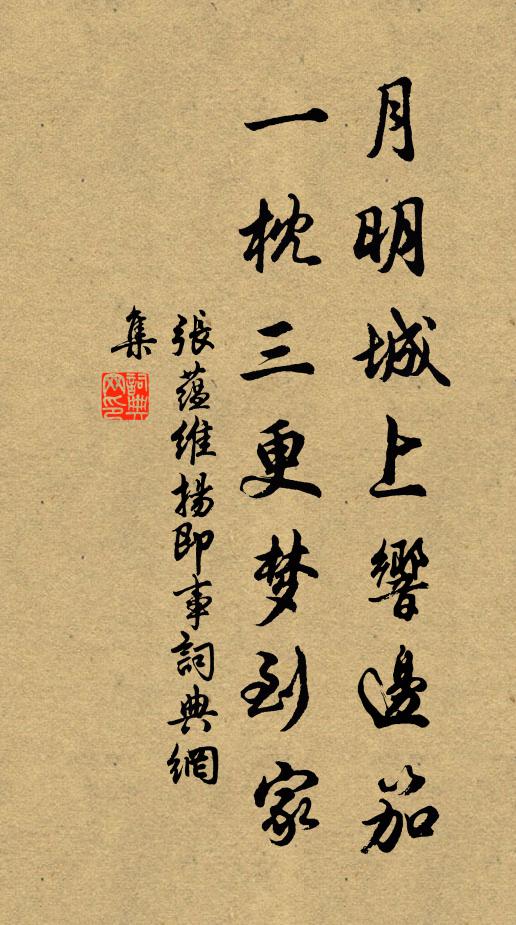 月明城上響邊笳
一枕三更梦到家
張蘊維揚即事詞典網
集
詞典網印